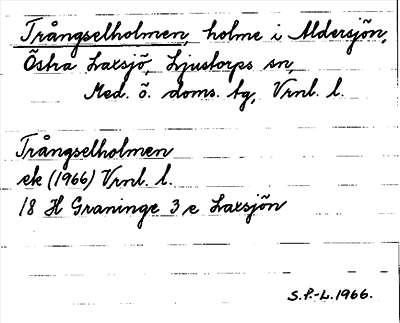 Trångselholmen, holme i Aldersjön,
Östra Laxsjö, Ljustorps sn,
Med. ö. doms. tg, Vrnl. l.
Trångselholmen
ek (1966) Vrnl. l.
18 H Graninge 3 e Laxsjön
S.P.-L. 1966.